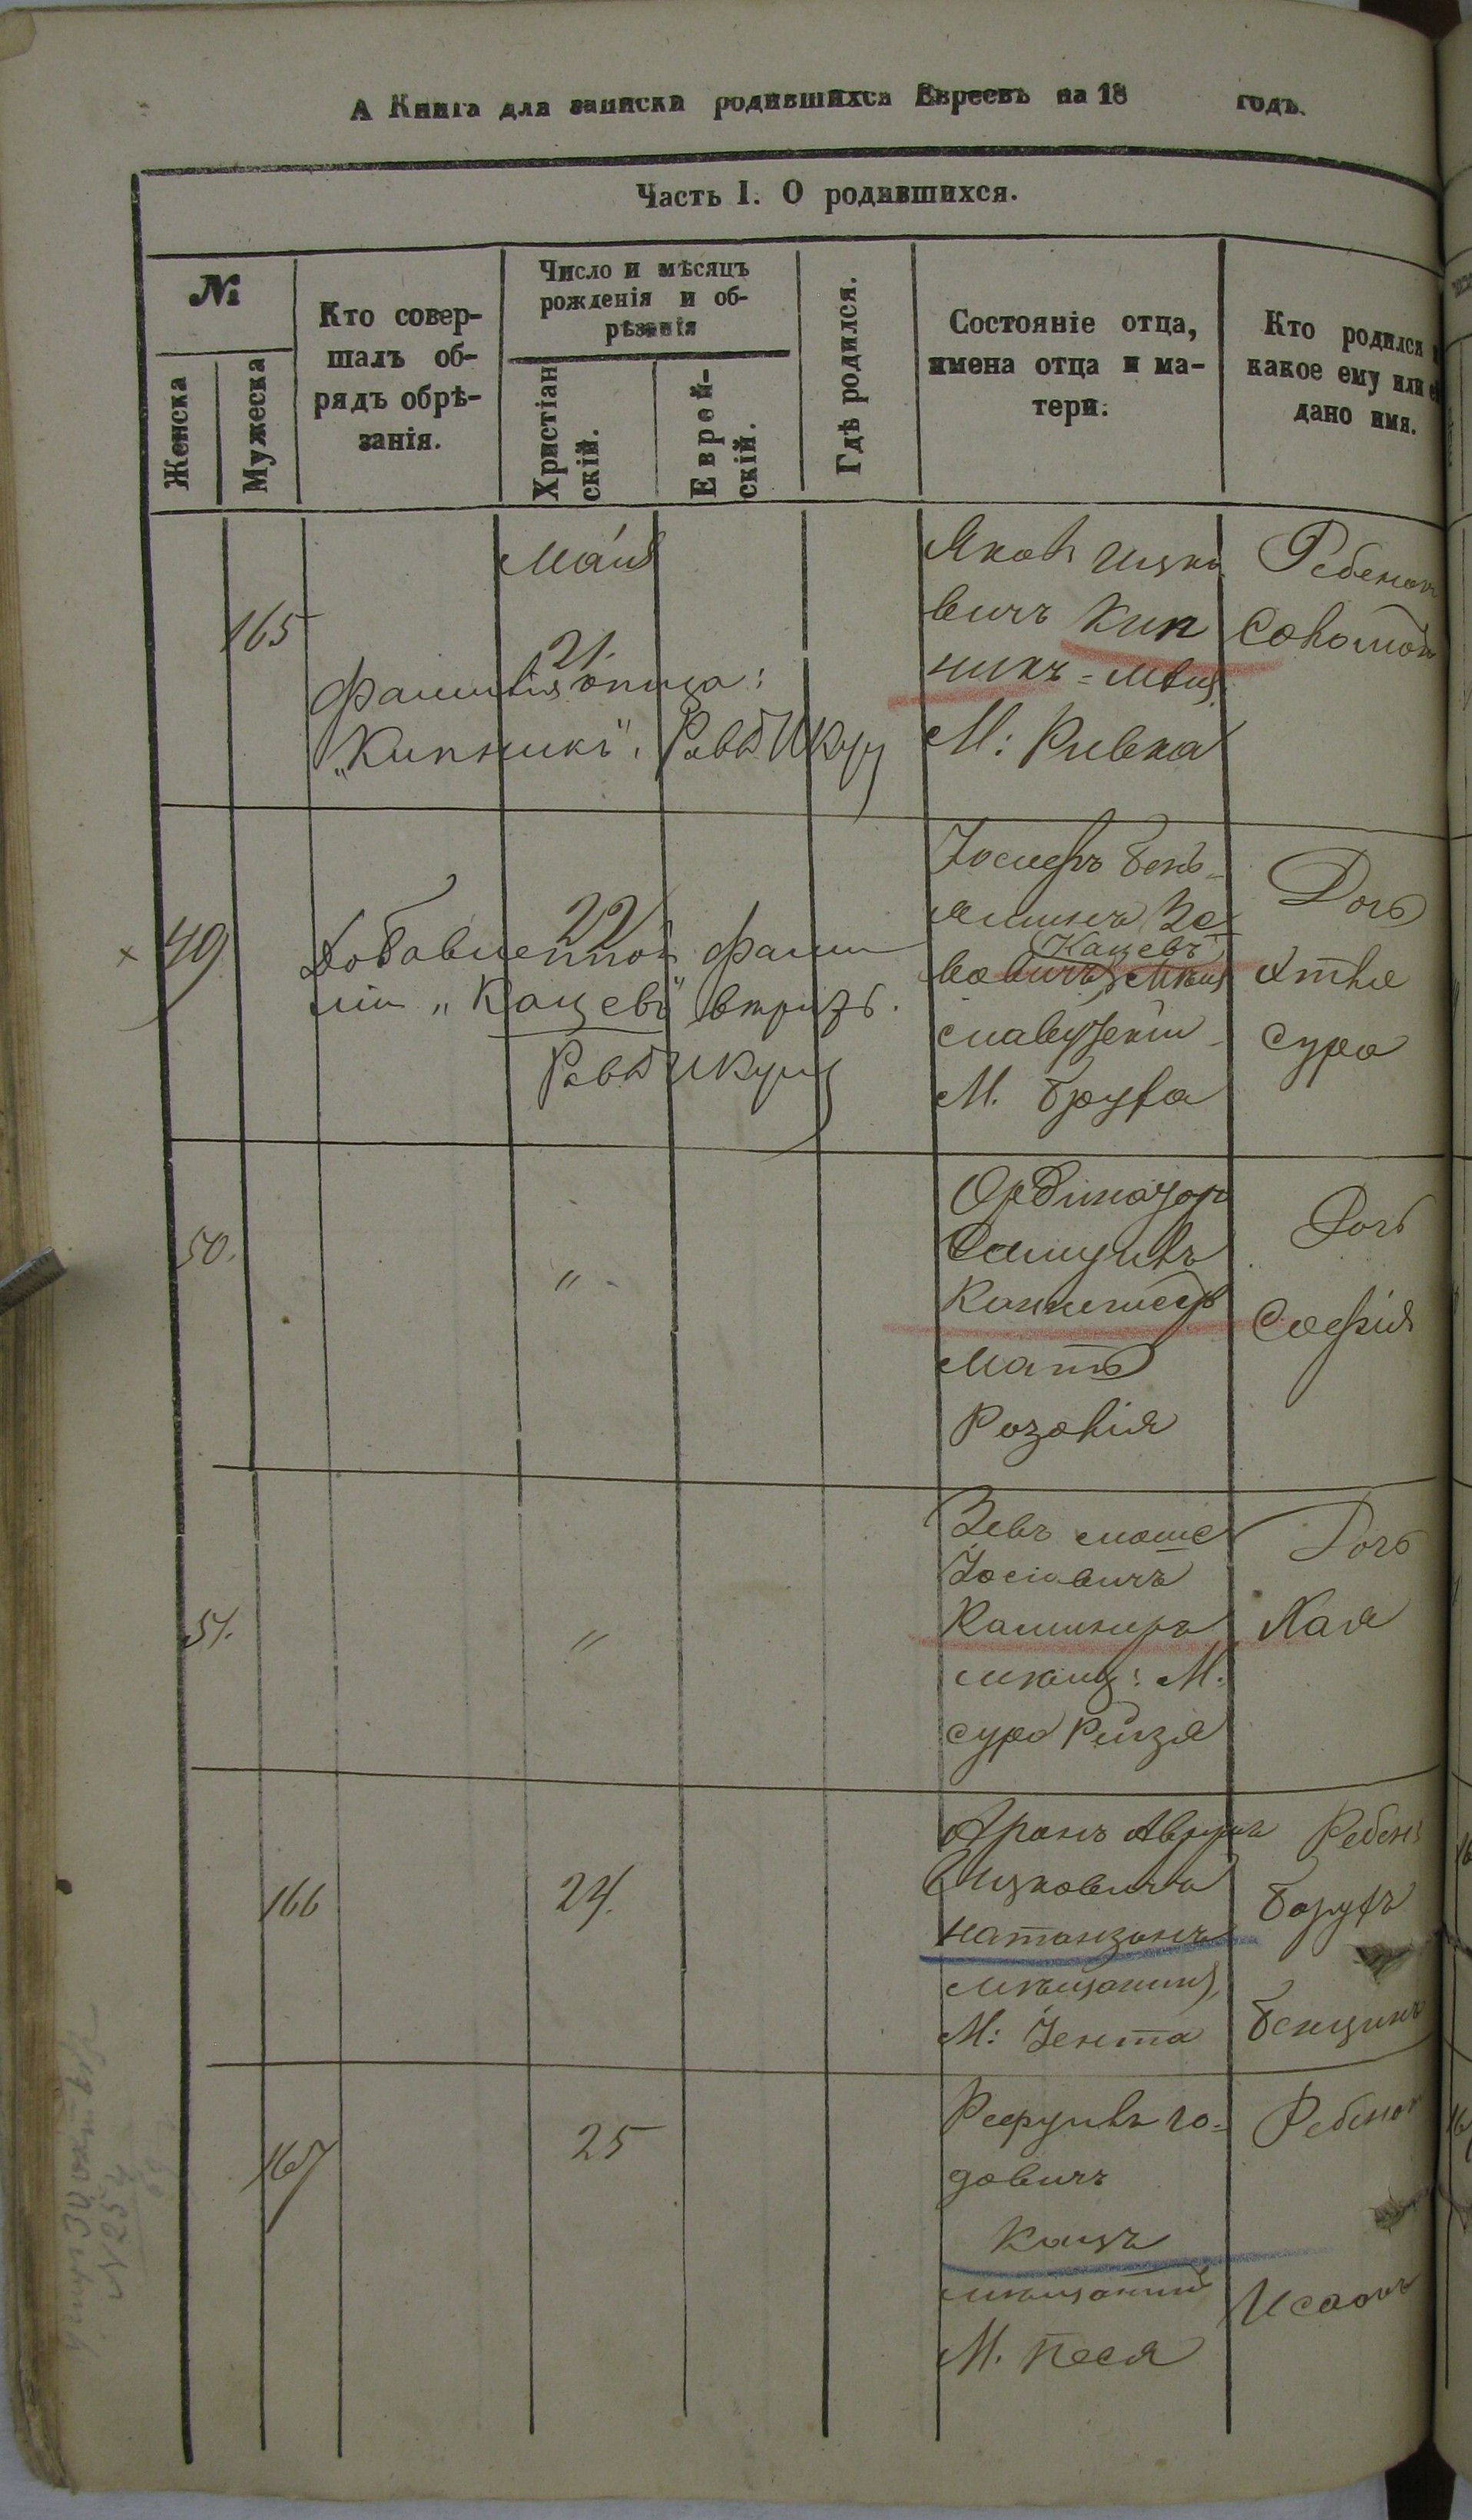 А Книга для записки родившихся Евреевъ на 18 годъ.
Часть I. О родившихся.
№
Женска
Мужеска
Кто совер-
шалъ об-
рядъ обрѣ-
занія.
Число и мѣсяцъ
рожденія и об-
рѣзанія
Христіан
скій.
Еврей-
скій.
Гдѣ родился.
Состояніе отца,
имена отца и ма-
тери.
Кто родился и
какое ему или ей
дано имя.
165
Мая
21.
фамилія отца:
"Кипникъ". Равв
Яковъ Ицко
вичъ Кип
никъ - мѣщ.
М: Ривка
Ребенокъ
Соломонъ
49
22
Добавленной фами
ліи "Кацевъ" вѣрить.
Равв
Іосифъ Бень-
яминъ Зе
Кацевъ
вовичъ мѣщ
славутскій
М. Бруха
Дочь
Этля
Сура
50.
"
Ординаторъ
Самуилъ
Мать
Розалія
Дочь
Софія
51.
"
Зевъ Моше
Іосіовичъ
Кашниръ
мѣщ: М.
Сура Рейзя
Дочь
Хая
166
24.
Аронъ Аврумъ
Ицковичъ
Натанзонъ
мѣщанинъ
М: Іента
Ребенъ
Борухъ
Бенционъ
167
25
Рефуилъ Іо-
довичъ
Кацъ
мѣщанинъ
М. Песя
Ребенокъ
Исаакъ